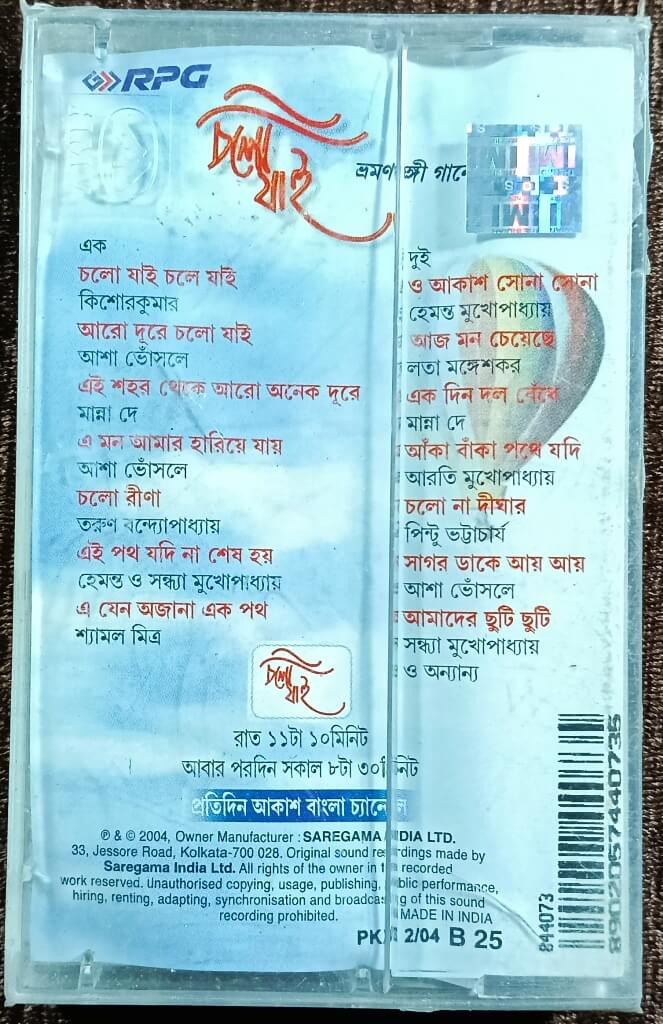 RPG
চলো
যাই
ভ্রমণ ঙ্গী গানে
এক
চলো যাই চলে যাই
কিশোরকুমার
আরো দূরে চলো যাই
আশা ভোঁসলে
এই শহর থেকে আরো অনেক দূরে
মান্না দে
এ মন আমার হারিয়ে যায়
আশা ভোঁসলে
চলো রীণা
তরুণ বন্দ্যোপাধ্যায়
এই পথ যদি না শেষ হয়
হেমন্ত ও সন্ধ্যা মুখোপাধ্যায়
এ যেন অজানা এক পথ
শ্যামল মিত্র
দুই
ও আকাশ সোনা সোনা
হেমন্ত মুখোপাধ্যায়
আজ মন চেয়েছে
লতা মঙ্গেশকর
এক দিন দল বেঁধে
মান্না দে
আঁকা বাঁকা পথে যদি
আরতি মুখোপাধ্যায়
চলো না দীঘার
পিন্টু ভট্টাচার্য
সাগর ডাকে আয় আয়
আশা ভোঁসলে
আমাদের ছুটি ছুটি
সন্ধ্যা মুখোপাধ্যায়
ও অন্যান্য
চলো
যাই
রাত ১১টা ১০মিনিট
আবার পরদিন সকাল ৮টা ৩০মিনিট
প্রতিদিন আকাশ বাংলা চ্যানেল
℗ & © 2004, Owner Manufacturer : SAREGAMA INDIA LTD.
33, Jessore Road, Kolkata-700 028. Original sound recordings made by
Saregama India Ltd. All rights of the owner in the recorded
work reserved. Unauthorised copying, usage, publishing, public performance,
hiring, renting, adapting, synchronisation and broadcasting of this sound
recording prohibited. MADE IN INDIA
2/04 B 25
844073
8902057440735